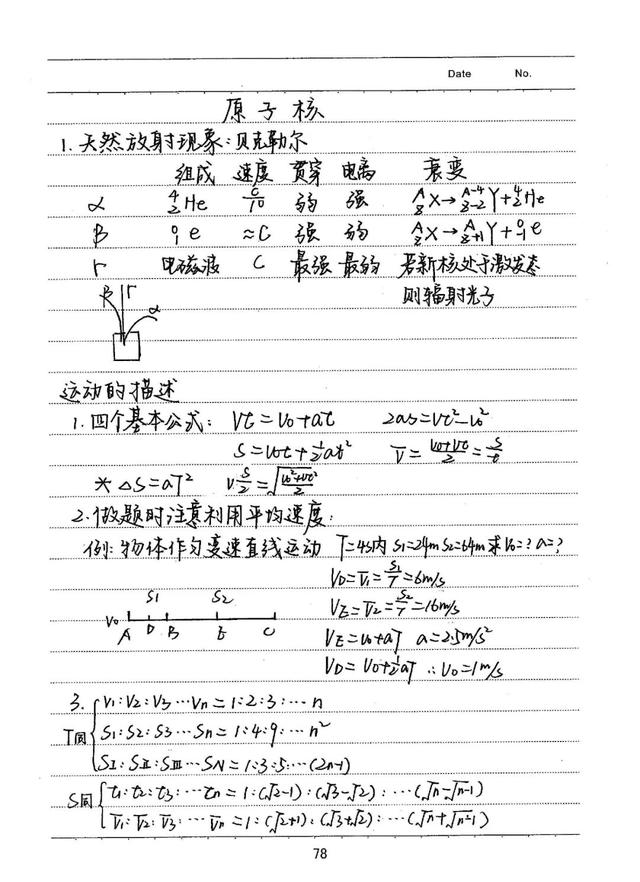 Date No.
原子核
1. 天然放射现象: 贝克勒尔
组成 速度 贯穿 电离 衰变
α ⁴₂He c/10 弱 强 ᴬ_Z X → ᴬ⁻⁴_Z-2 Y + ⁴₂He
β ⁰₋₁e ≈C 强 弱 ᴬ_Z X → ᴬ_Z+1 Y + ⁰₋₁e
r 电磁波 C 最强 最弱 若新核处于激发态
则辐射光子
β r α
运动的描述
1. 四个基本公式: Vt = V0 + at 2as = Vt² - V0²
S = V0t + ½at² V̄ = (V0+Vt)/2 = S/t
* △S = aT² V s/2 = √((V0²+Vt²)/2)
2. 做题时注意利用平均速度:
例: 物体作匀变速直线运动 T=4s内 S1=24m S2=64m 求V0=? a=?
VD = V̄1 = S1/T = 6m/s
S1 S2 VE = V̄2 = S2/T = 16m/s
V0 A D B E C VE = V0 + aT a = 2.5m/s²
VD = V0 + ½aT ∴V0 = 1m/s
3. V1:V2:V3 … Vn = 1:2:3: … n
T同 S1:S2:S3 … Sn = 1:4:9: … n²
SⅠ:SⅡ:SⅢ … SN = 1:3:5: … (2n-1)
S同 t1:t2:t3: … tn = 1:(√2-1):(√3-√2): … (√n-√n-1)
V̄1:V̄2:V̄3: … V̄n = 1:(√2+1):(√3+√2): … (√n+√n-1)
78